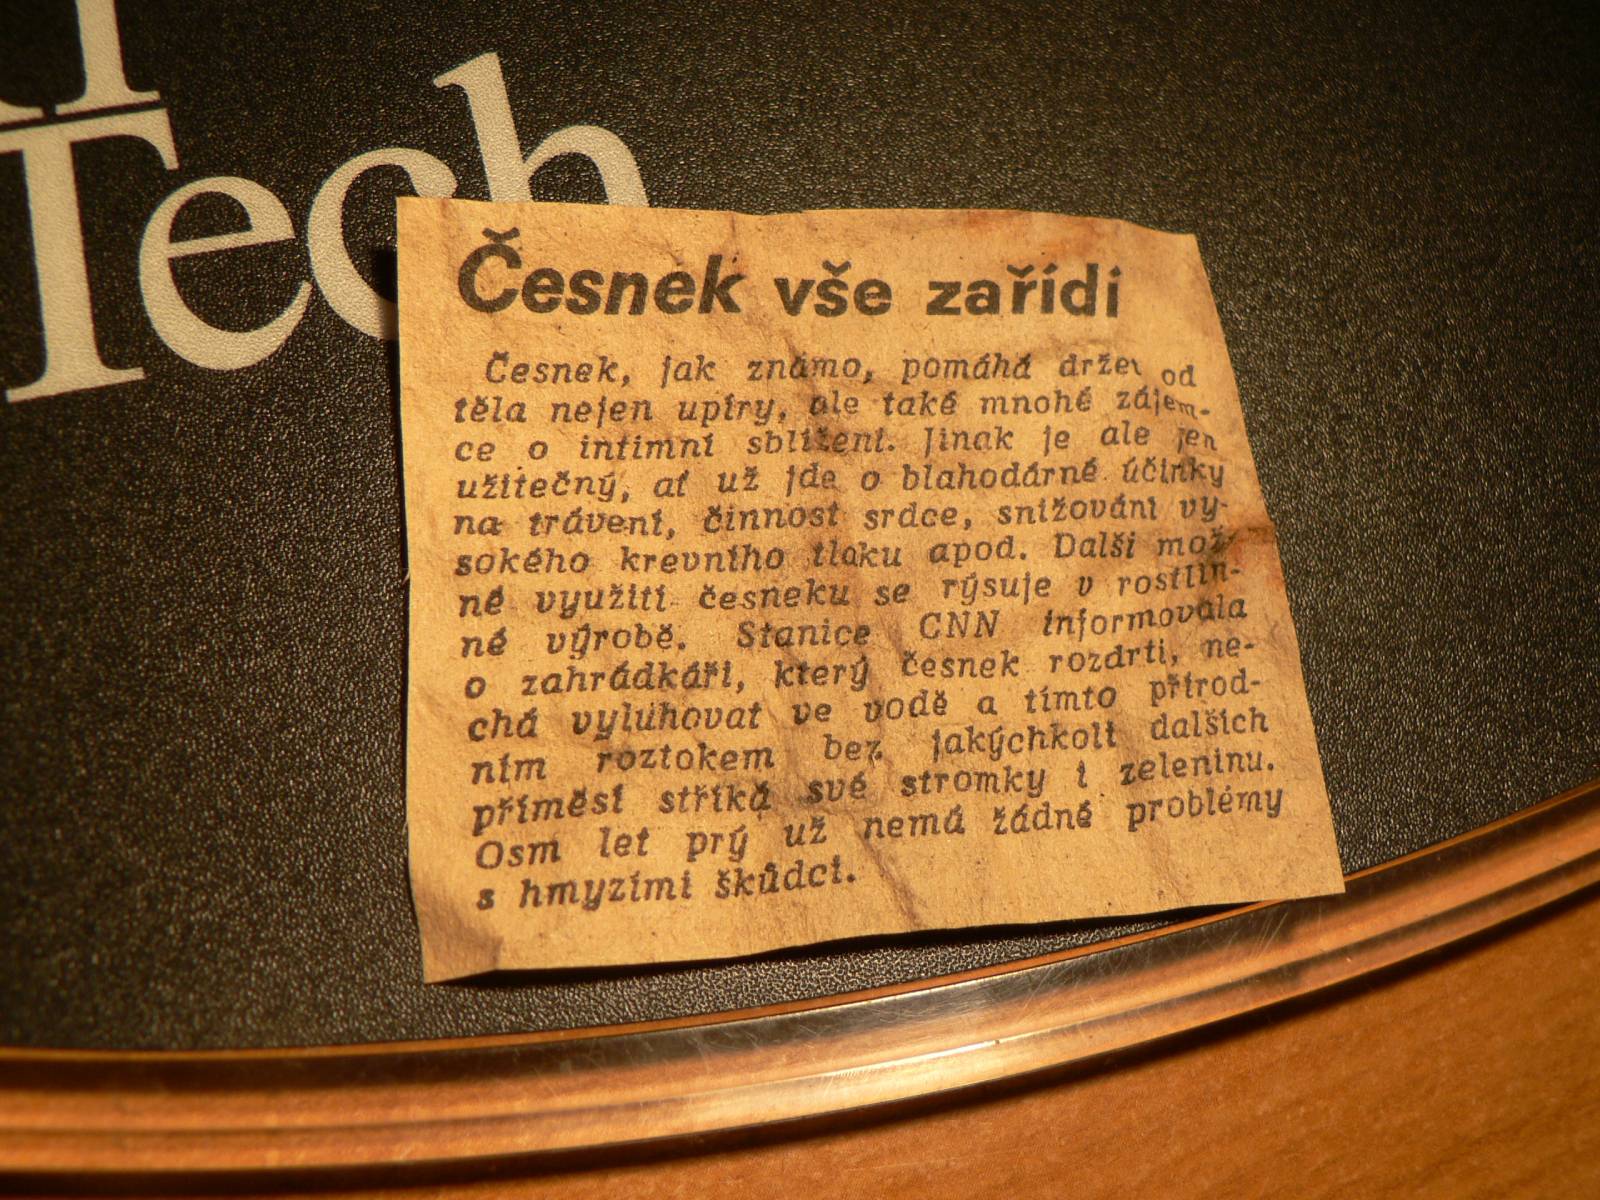 Tech
Česnek vše zařídí
Česnek, jak známo, pomáhá držet od
těla nejen upíry, ale také mnohé zájem-
ce o intimní sblížení. Jinak je ale jen
užitečný, ať už jde o blahodárné účinky
na trávení, činnost srdce, snižování vy-
sokého krevního tlaku apod. Další mož-
né využití česneku se rýsuje v rostlin-
né výrobě. Stanice CNN informovala
o zahrádkáři, který česnek rozdrtí, ne-
chá vyluhovat ve vodě a tímto přírod-
ním roztokem bez jakýchkoli dalších
příměsí stříká své stromky i zeleninu.
Osm let prý už nemá žádné problémy
s hmyzími škůdci.